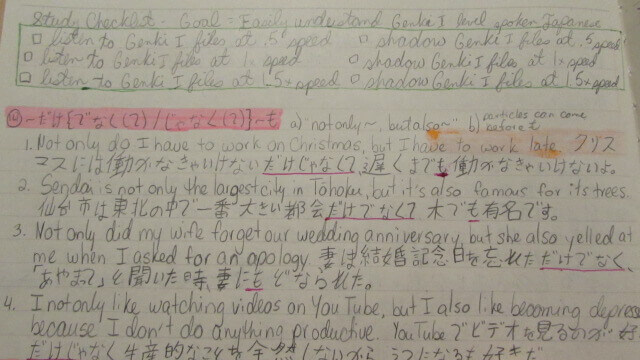 Study Checklist - Goal = Easily understand Genki I level spoken Japanese
□ listen to Genki I files at .5 speed □ shadow Genki I files at .5 speed
□ listen to Genki I files at 1x speed □ shadow Genki I files at 1x speed
□ listen to Genki I files at 1.5x speed □ shadow Genki I files at 1.5x speed
~だけ{でなく(て)/じゃなく(て)}~も a) "not only~, but also~" b) particles can come before も
1. Not only do I have to work on Christmas, but I have to work late. クリス
マスには働かなきゃいけないだけじゃなくて、遅くまでも働かなきゃいけないよ。
2. Sendai is not only the largest city in Tohoku, but it's also famous for its trees.
仙台市は東北の中で一番大きい都会だけでなくて木でも有名です。
3. Not only did my wife forget our wedding anniversary, but she also yelled at
me when I asked for an apology. 妻は結婚記念日を忘れただけでなく、
「あやまて」と聞いた時、妻にもどなられた。
4. I not only like watching videos on YouTube, but I also like becoming depres
because I don't do anything productive. YouTubeでビデオを見るのが好
だけじゃなく生産的なことを全然しないから